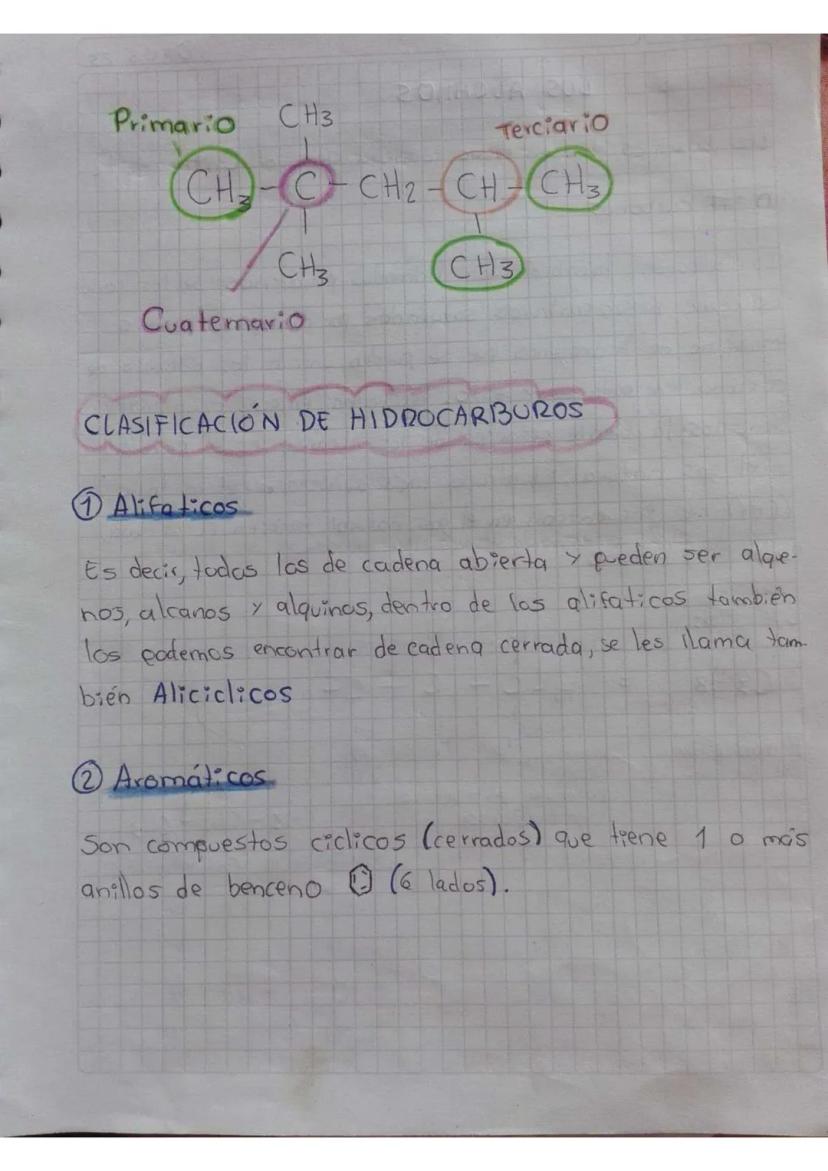 Primario CH3 Terciario
CH3 - C - CH2 - CH - CH3
CH3 CH3
Cuaternario
CLASIFICACIÓN DE HIDROCARBUROS
① Alifaticos
Es decir, todos los de cadena abierta y pueden ser alque-
nos, alcanos y alquinos, dentro de los alifaticos también
los podemos encontrar de cadena cerrada, se les llama tam-
bién Aliciclicos
② Aromáticos
Son compuestos ciclicos (cerrados) que tiene 1 o más
anillos de benceno (6 lados).